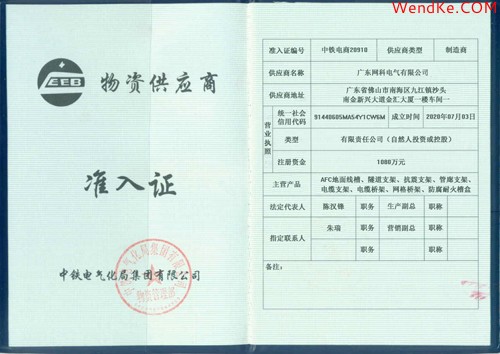 WendKe.Com
EEB
物资供应商
准入证
中铁电气化局集团有限公司
准入证编号 中铁电商20910 供应商类型 制造商
供应商名称 广东网科电气有限公司
供应商地址 广东省佛山市南海区九江镇沙头
南金新兴大道金汇大厦一楼车间一
营业执照 统一社会信用代码 91440605MA54Y1CW6M 成立时间 2020年07月03日
类型 有限责任公司（自然人投资或控股）
注册资金 1088万元
主营产品 AFC地面线槽、隧道支架、抗震支架、管廊支架、
电缆支架、电缆桥架、网格桥架、防腐耐火槽盒
法定代表人 陈汉锋 职务 生产副总 职称
指定联系人 朱瑞 职务 营销副总 职称
职务 职称
备注：